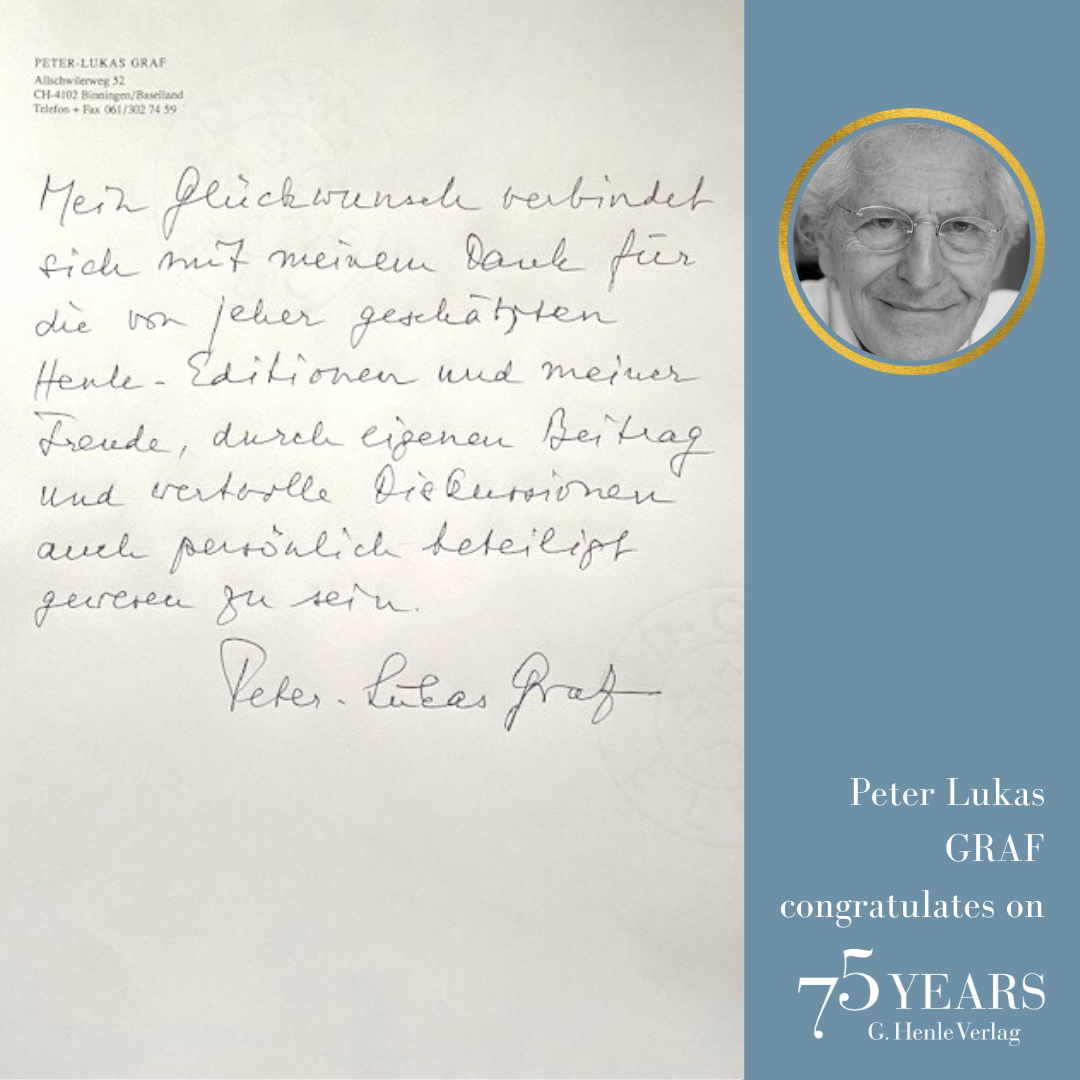 PETER-LUKAS GRAF
Allschwilerweg 52
CH-4102 Binningen/Baselland
Telefon + Fax 061/302 74 59
Mein Glückwunsch verbindet
sich mit meinem Dank für
die von jeher geschätzten
Henle-Editionen und meiner
Freude, durch eigenen Beitrag
und wertvolle Diskussionen
auch persönlich beteiligt
gewesen zu sein.
Peter-Lukas Graf
Peter Lukas
GRAF
congratulates on
75 YEARS
G. Henle Verlag